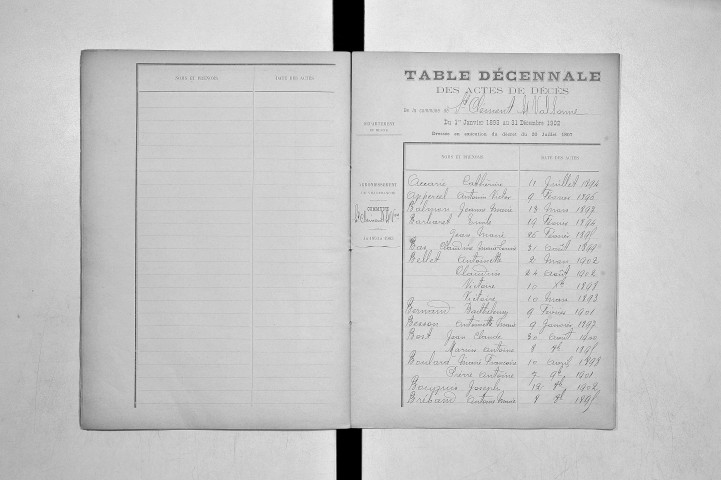 NOMS ET PRÉNOMS DATE DES ACTES
TABLE DÉCENNALE
DES ACTES DE DÉCÈS
De la commune de St Clément S/ Valsonne
Du 1er Janvier 1893 au 31 Décembre 1902
Dressée en exécution du décret du 20 Juillet 1807
DÉPARTEMENT
DU RHÔNE
ARRONDISSEMENT
DE VILLEFRANCHE
COMMUNE
NOMS ET PRÉNOMS DATE DES ACTES
Accarie Catherine 11 Juillet 1894
Appercel Antoine Victor 9 Février 1896
Balmon Jeanne Marie 13 Mars 1897
Barbaret Emile 19 Février 1896
Jean Marie 26 Février 1895
Bas Claudine 31 Août
Bellet Antoinette 2 Mars 1902
Claudine 24 Août 1902
Victoire 10 Xbre 1898
Victoire 10 Mars 1893
Bernand Barthélemy 9 Février 1901
Besson Antoinette 9 Janvier 1897
Bost Jean Claude 30 Août 1900
Marius Antoine 8
Boulard Marie Françoise 10 Avril 1898
Pierre Antoine 7 9bre 1901
Joseph 12 1902
Antoine 8